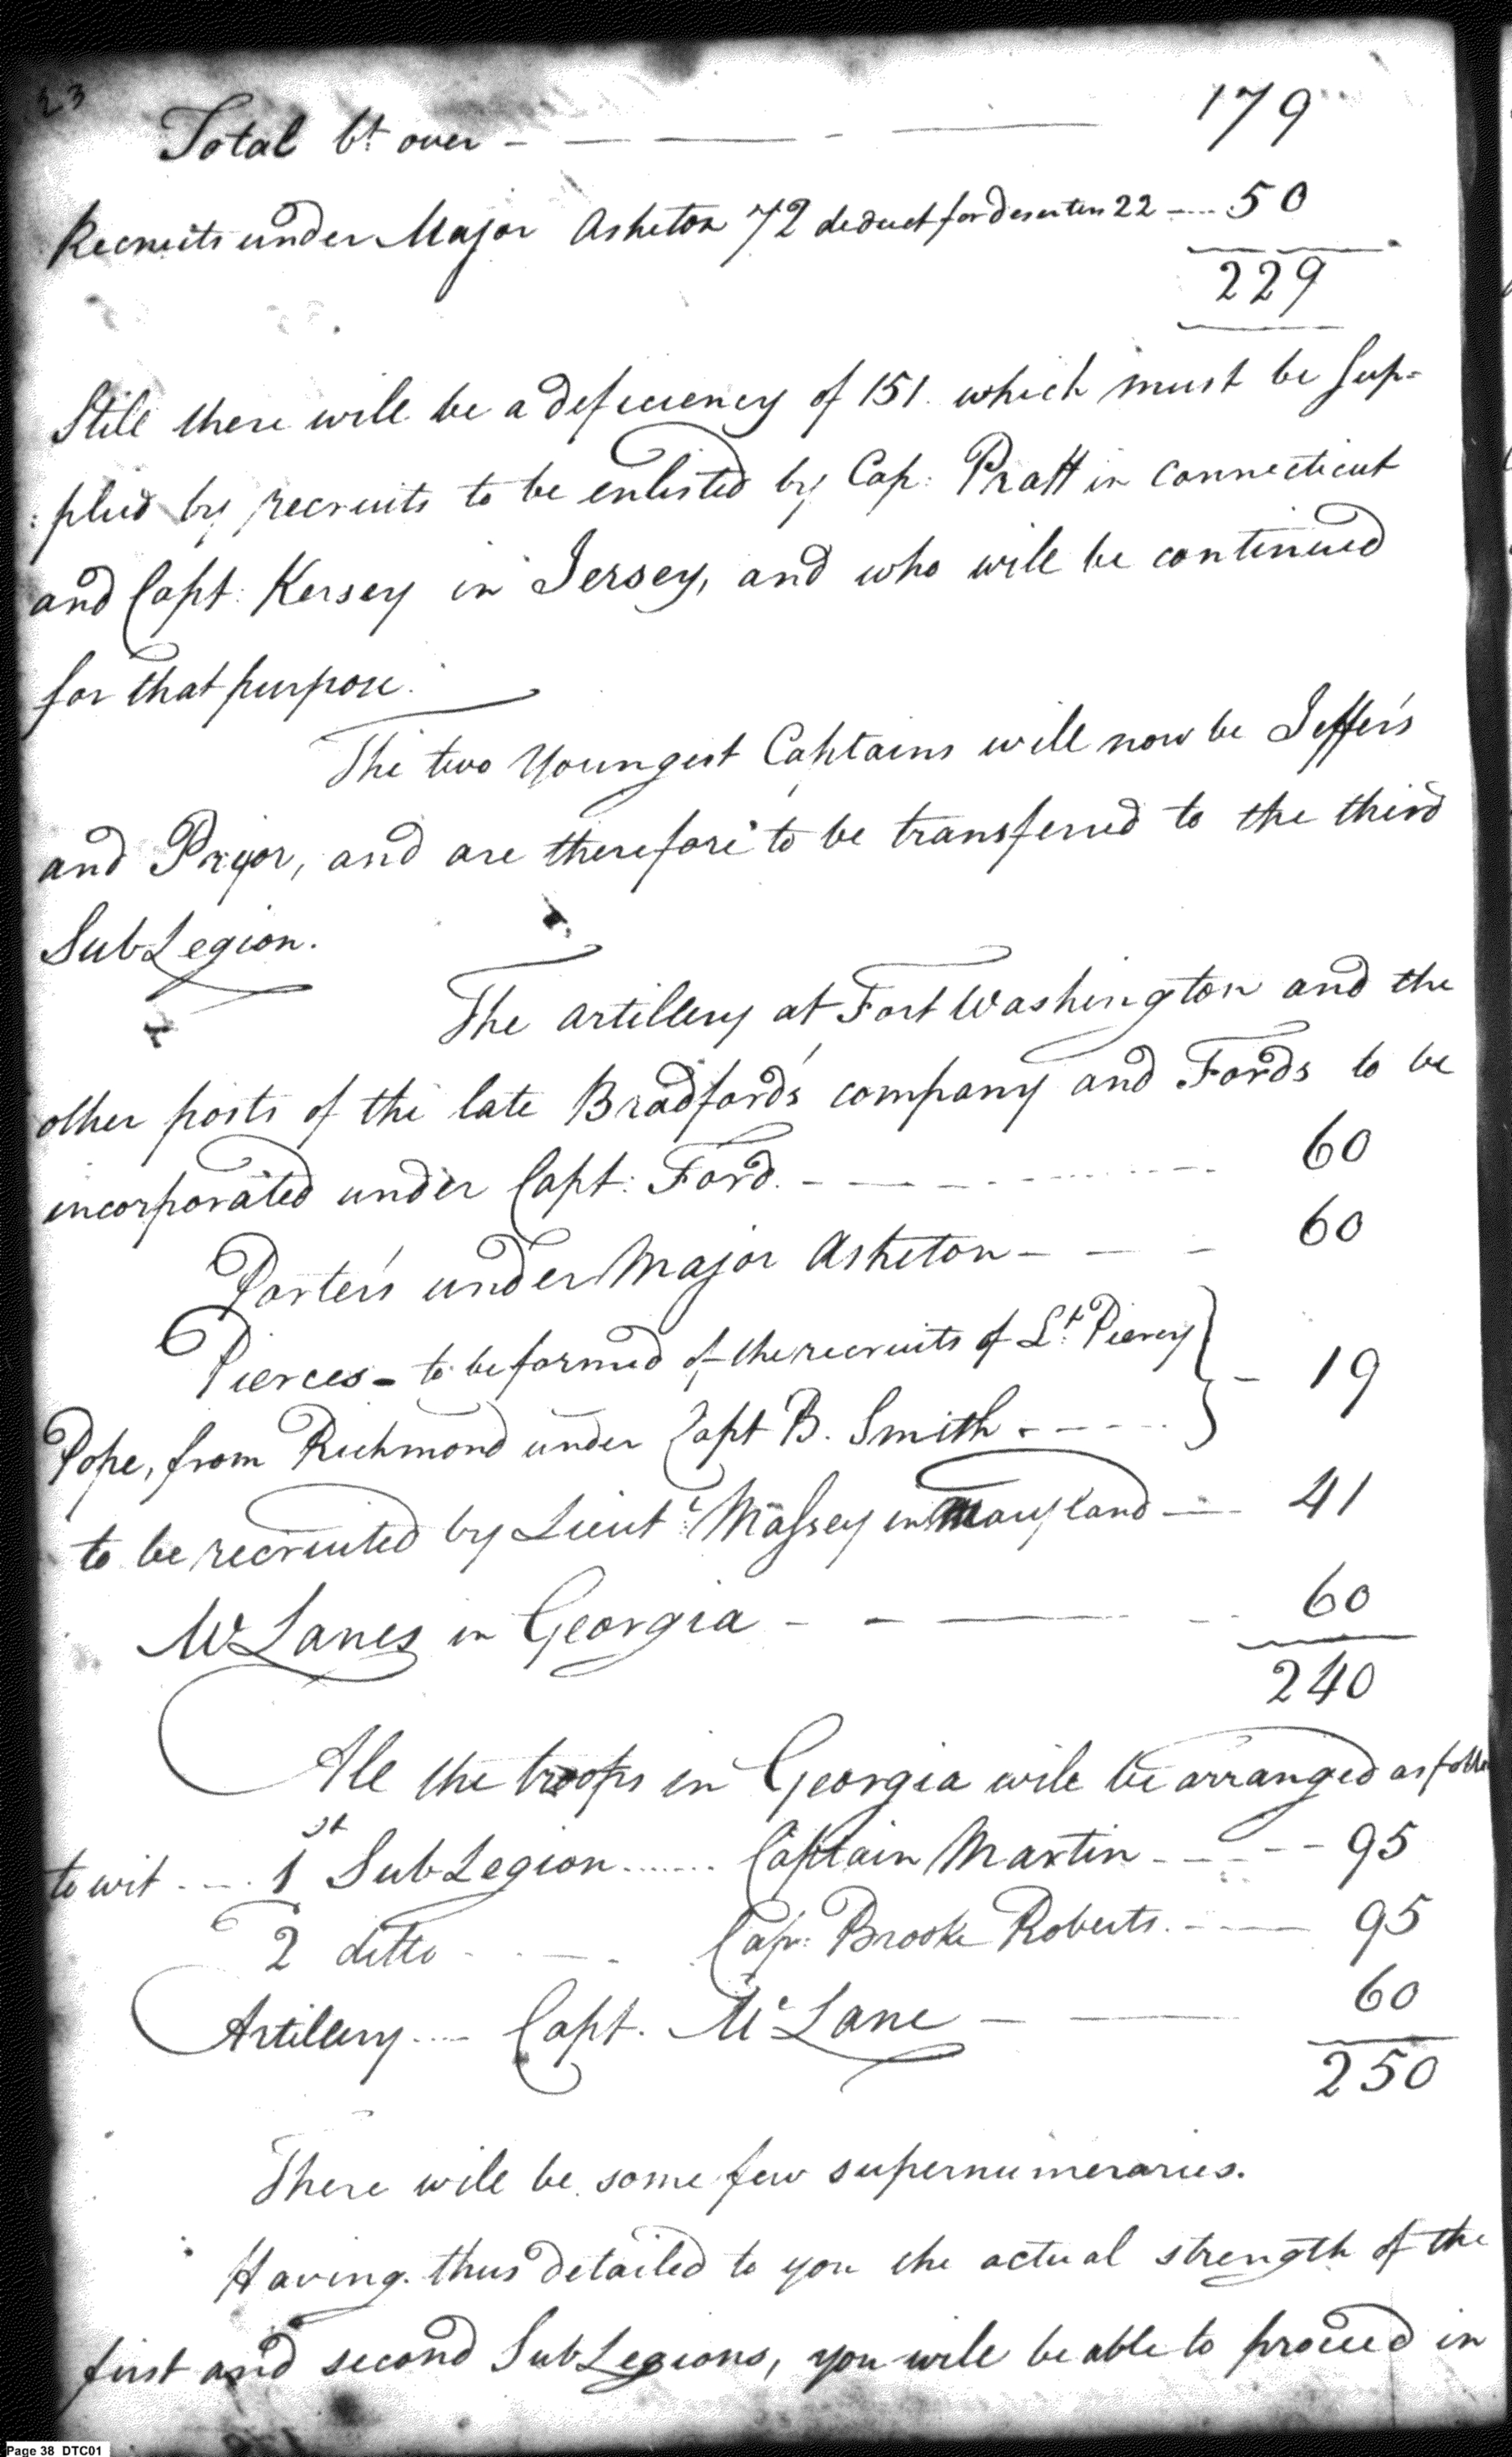 23
Total bt over - — — - — 179
Recruits under Major Asheton 72 deduct for deserters 22 --- 50
229
Still there will be a deficiency of 151. which must be sup=
:plied by recruits to be enlisted by Cap: Pratt in Connecticut
and Capt: Kersey in Jersey, and who will be continued
for that purpose.
The two Youngest Captains will now be Jeffer's
and Pryor, and are therefore to be transferred to the third
Sub Legion.
The artillery at Fort Washington and the
other posts of the late Bradford's company and Fords to be
incorporated under Capt: Ford. - — — - - - - - 60
Porter's under Major Asheton - — - 60
Pierces - to be formed of the recruits of Lt. Piercy } - 19
Pope, from Richmond under Capt B. Smith - - - -
to be recruited by Lieut: Massey in Maryland — 41
McLanes in Georgia - — — - - 60
240
All the troops in Georgia will be arranged as follow
to wit - - - 1st Sub Legion ...... Captain Martin - - - - 95
2 ditto - - - - Cap: Brooke Roberts. - — 95
Artillery .... Capt. Mc Lane — — 60
250
There will be some few supernumeraries.
Having thus detailed to you the actual strength of the
first and second Sub Legions, you will be able to proceed in
Page 38 DTC01